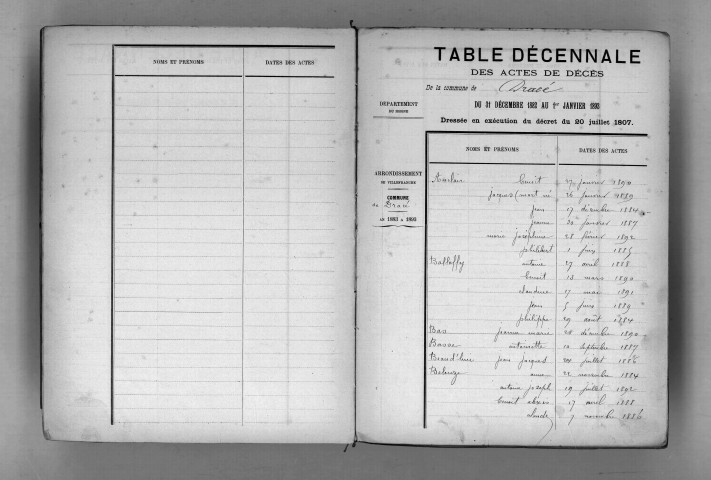 NOMS ET PRÉNOMS DATES DES ACTES
TABLE DÉCENNALE
DES ACTES DE DÉCÈS
De la commune de Dracé
DU 31 DÉCEMBRE 1882 AU 1er JANVIER 1893
Dressée en exécution du décret du 20 juillet 1807.
DÉPARTEMENT
DU RHONE
ARRONDISSEMENT
DE VILLEFRANCHE
COMMUNE
de Dracé
DE 1883 A 1893
NOMS ET PRÉNOMS DATES DES ACTES
benoit 27 janvier 1890
jacques (mort né 26 janvier 1889
jean 17 décembre 1884
jeanne 20 janvier 1887
marie joséphine 28 février 1892
philibert 1 juin 1885
Balloffy antoine 27 avril 1888
benoit 13 mars 1890
claudine 17 mai 1891
jean 5 juin 1889
philippe 29 août 1884
Bas jeanne marie 28 décembre 1890
Basse antoinette 10 septembre 1887
jean jacques 20 juillet 1886
Belouze anne 22 novembre 1884
antoine joseph 19 juillet 1892
benoit 17 avril 1888
claude 7 novembre 1886